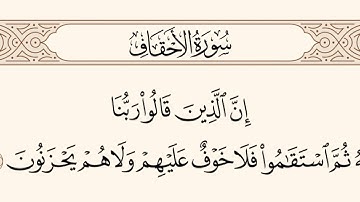 سُورَةُ الأَحْقَافِ
إِنَّ ٱلَّذِينَ قَالُوا۟ رَبُّنَا
ثُمَّ ٱسْتَقَٰمُوا۟ فَلَا خَوْفٌ عَلَيْهِمْ وَلَا هُمْ يَحْزَنُونَ